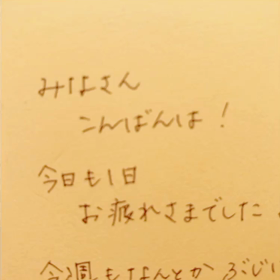 みなさん
こんばんは！
今日も1日
お疲れさまでした。
今週もなんとかぶじ